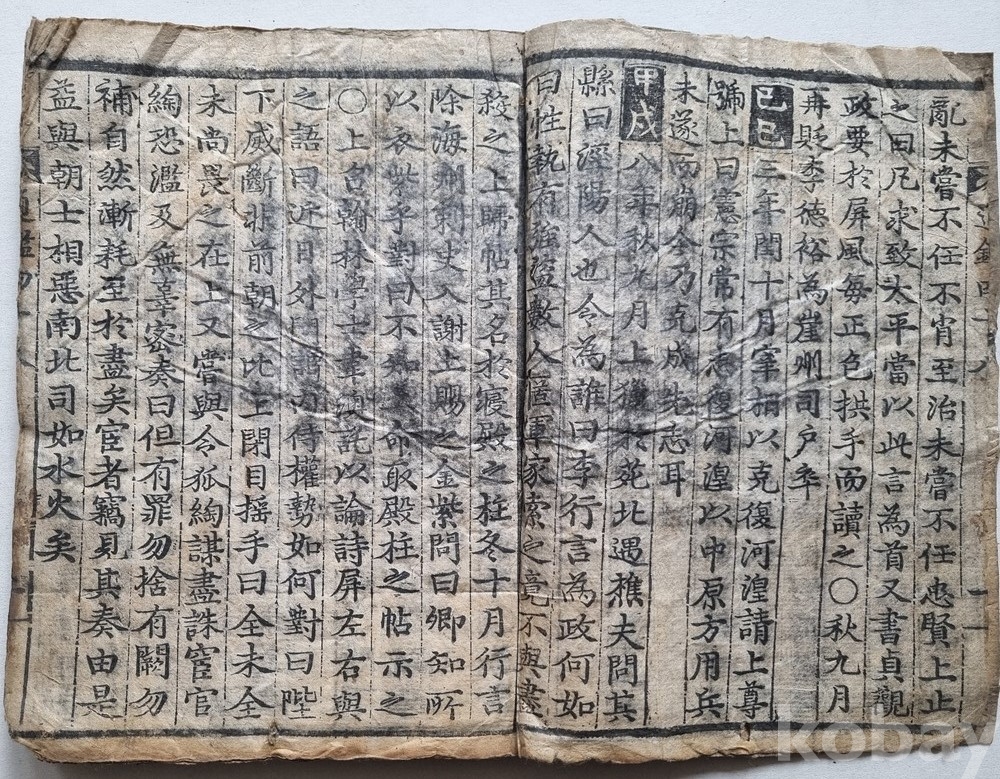 亂未嘗不任不肖至治未嘗不任忠賢上止
之曰凡求致太平當以此言為首又書貞觀
政要於屛風每正色拱手而讀之〇秋九月
再貶李德裕為崖州司戶卒
己巳三年閏十月宰相以克復河湟請上尊
號上曰憲宗常有志復河湟以中原方用兵
未遂而崩今乃克成先志耳
甲戌八年秋九月上獵於苑北遇樵夫問其
縣曰涇陽人也令為誰曰李行言為政何如
曰性執有強盜數人匿軍家索之竟不與盡
殺之上歸帖其名於寢殿之柱冬十月行言
除海州刺史入謝上賜之金紫問曰卿知所
以衣紫乎對曰不知上命取殿柱之帖示之
〇上召翰林學士韋澳託以論詩屛左右與
之語曰近日外間謂內侍權勢如何對曰陛
下威斷非前朝之比上閉目搖手曰全未全
未尚畏之在上又嘗與令狐綯謀盡誅宦官
綯恐濫及無辜密奏曰但有罪勿捨有闕勿
補自然漸耗至於盡矣宦者竊見其奏由是
益與朝士相惡南北司如水火矣
kobay